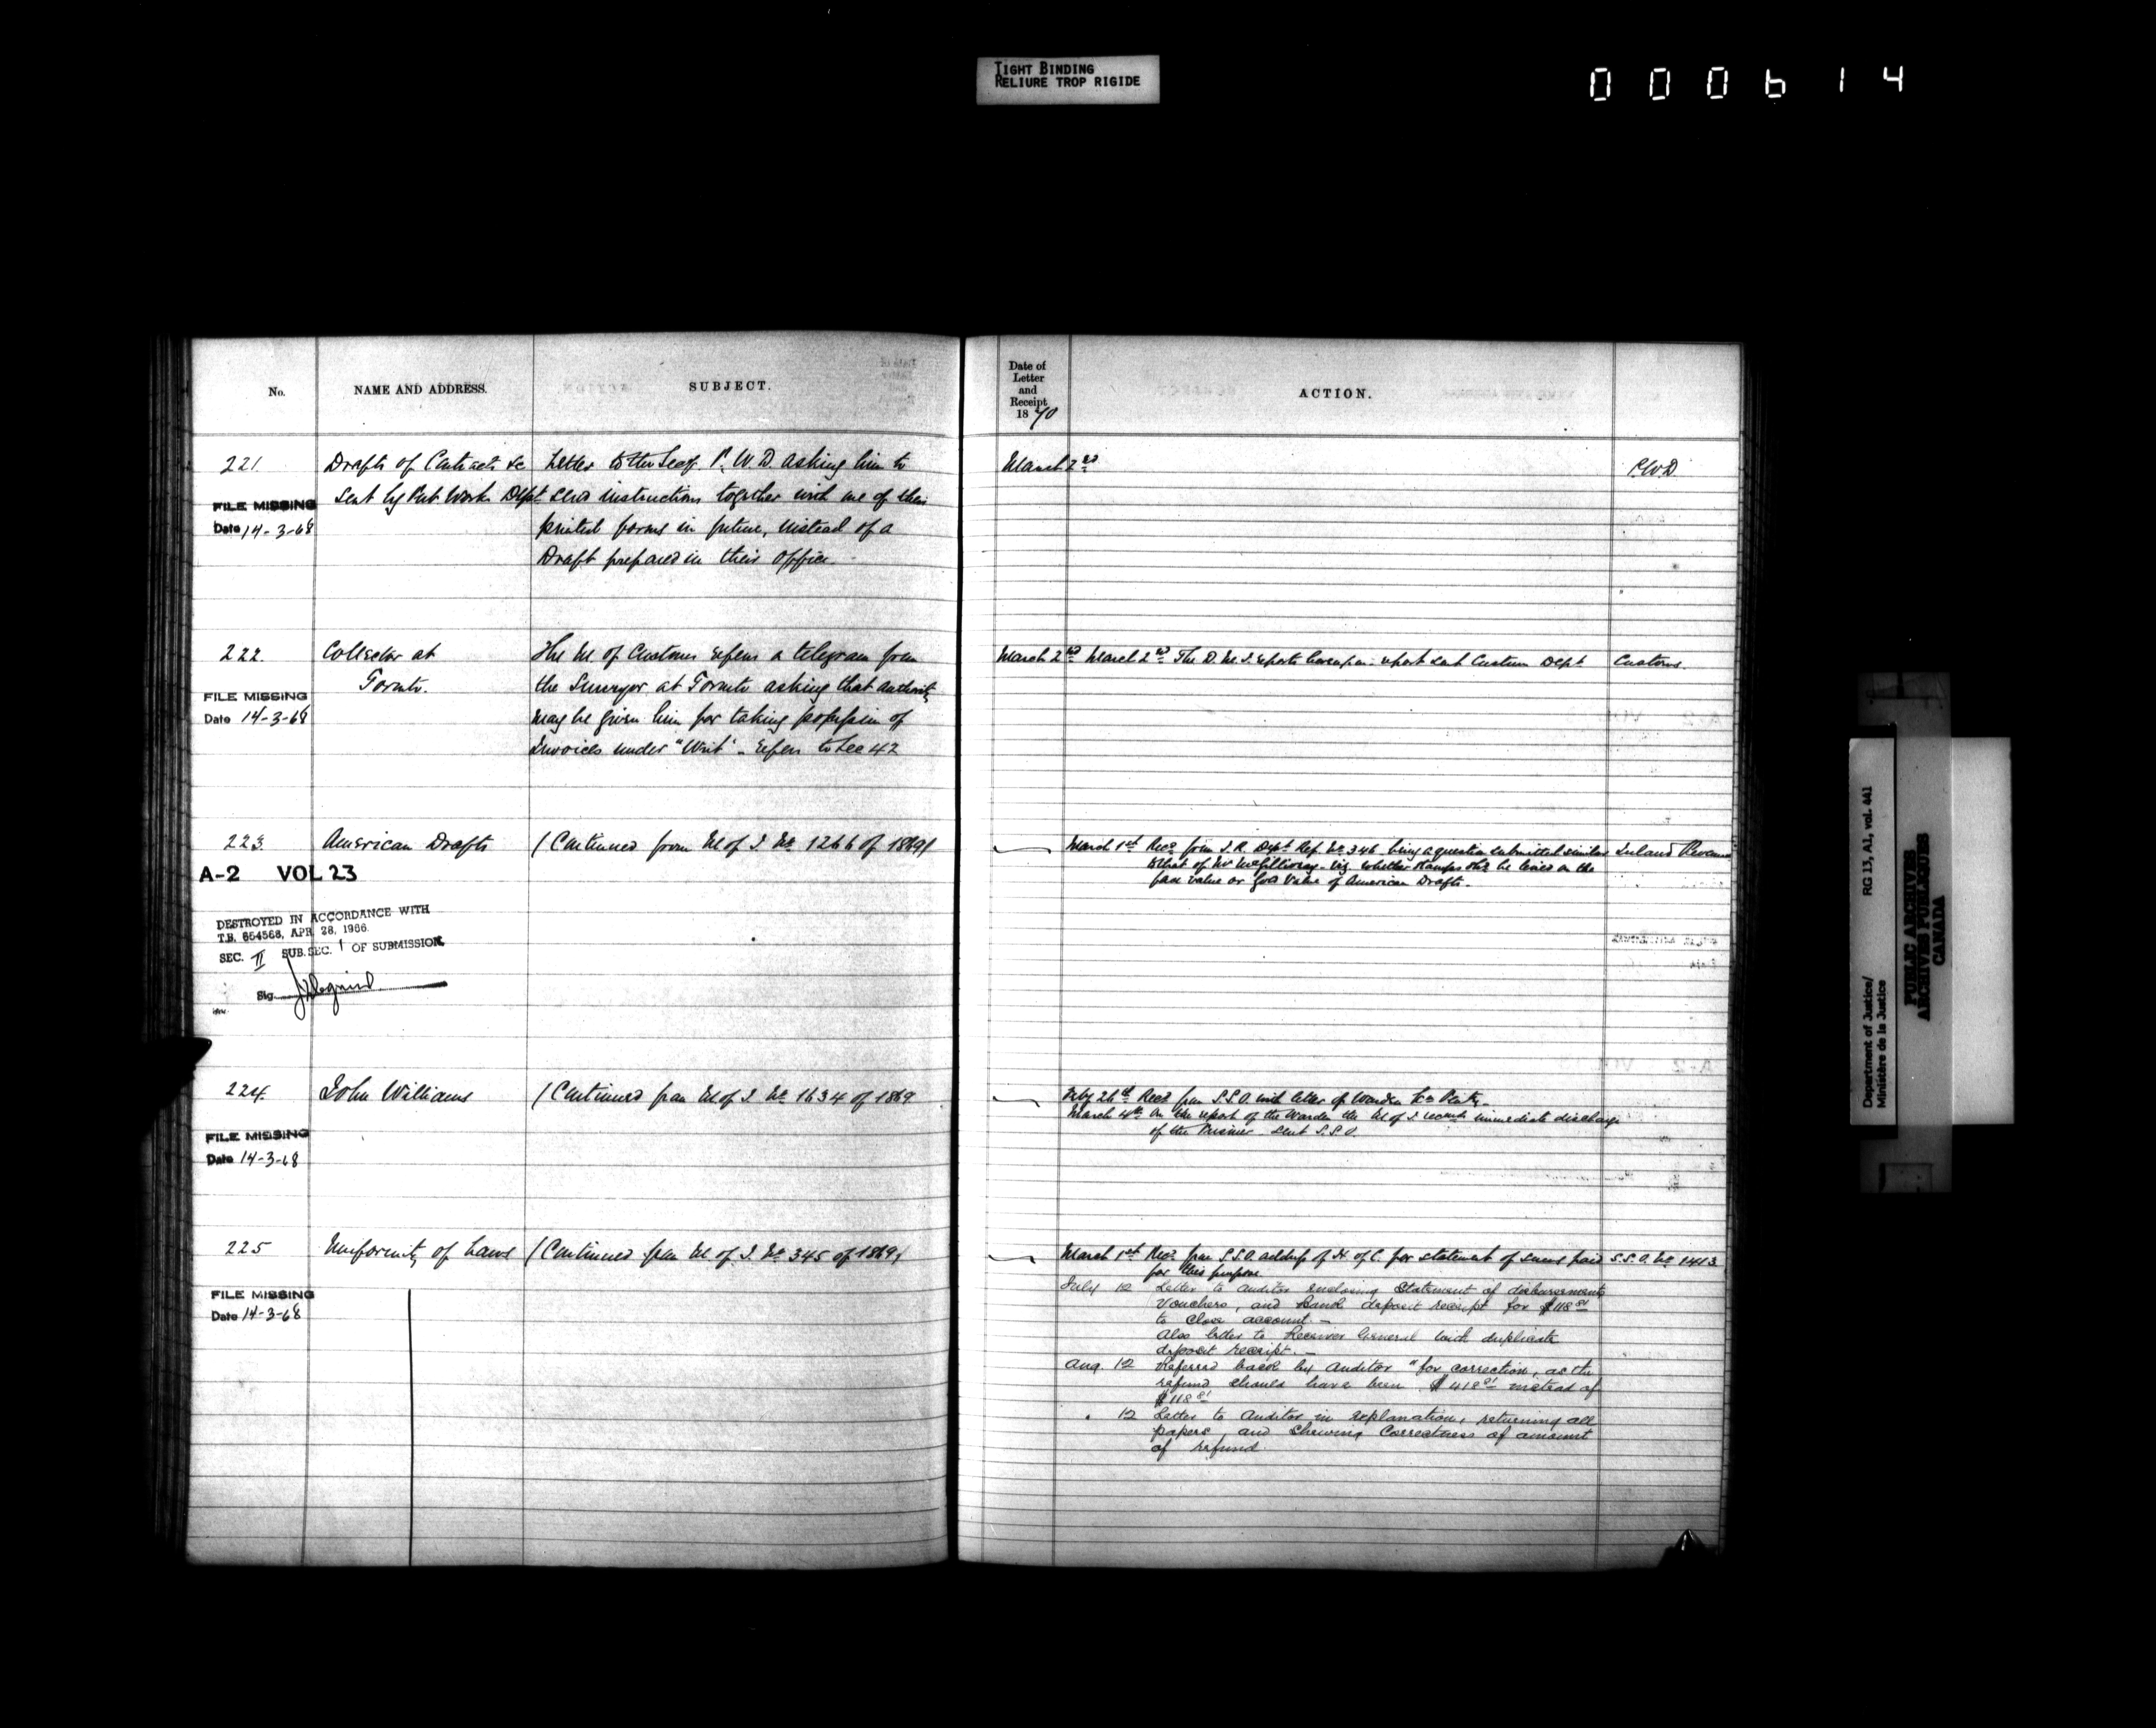 TIGHT BINDING
RELIURE TROP RIGIDE
000614
No.
NAME AND ADDRESS.
SUBJECT.
Date of
Letter
and
Receipt
1870
ACTION.
221
Drafts of Contracts &c
Sent by Pub. Works Dept
Letter to the Secy. P. W. D. asking him to
send instructions together with one of their
printed forms in future, instead of a
Draft prepared in their office.
March 2nd
P.W.D
FILE MISSING
Date 14-3-68
222.
Collector at
Toronto.
The M. of Customs refers a telegram from
the Surveyor at Toronto asking that authority
may be given him for taking possession of
Invoices under "Writ" - refers to Sec 42
March 2nd
March 2nd The D. M. J. reports hereupon. report sent Custom Dept
Customs.
FILE MISSING
Date 14-3-68
223.
American Drafts
(Continued from M of J. No. 1266 of 1869)
March 1st Recd from I.R. Dept Ref. No. 346 being a question submitted similar
to that of Mr McGillivray - viz. whether stamps shd be levied on the
face value or gold value of American Drafts.
Inland Revenue
A-2 VOL 23
DESTROYED IN ACCORDANCE WITH
T.B. 654568, APR. 28, 1966.
SEC. II SUB. SEC. 1 OF SUBMISSION
Sig.
224.
John Williams
(Continued from M of J. No. 1634 of 1869
Feby 26th Recd from S.S.O. with letter of Warden
March 4th On the report of the Warden the M of J. recomds immediate discharge
of the Prisoner. Sent S.S.O.
FILE MISSING
Date 14-3-68
225
Uniformity of Laws
(Continued from M of J. No. 345 of 1869)
March 1st Recd from S.S.O. address of H. of C. for statement of sums paid
for this purpose.
S.S.O. No. 1413.
July 12 Letter to Auditor enclosing Statement of disbursements
Vouchers, and Bank deposit receipt for $118 81
to close account. -
Also letter to Receiver General with duplicate
deposit receipt. -
Aug. 12 Referred back by Auditor "for correction, as the
refund should have been $418 81 instead of
$118 81
" 12 Letter to Auditor in explanation, returning all
papers and shewing correctness of amount
of refund.
FILE MISSING
Date 14-3-68
Department of Justice/
Ministère de la Justice
RG 13, A1, vol. 441
PUBLIC ARCHIVES
ARCHIVES PUBLIQUES
CANADA